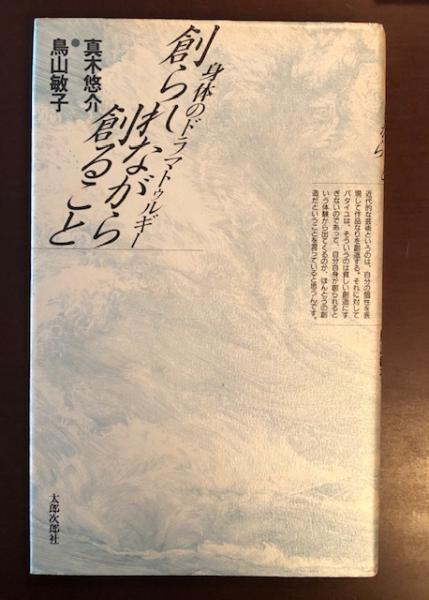 身体のドラマトゥルギー
創られながら
創ること
真木悠介
●
鳥山敏子
近代的な芸術というのは、自分の個性を表
現して作品なりを創造する。それに対して
バタイユは、そういうのは貧しい創造にす
ぎないのであって、自分自身が創られると
いう体験から出てくるのが、ほんとうの創
造だということを言っていると思うんです。
太郎次郎社